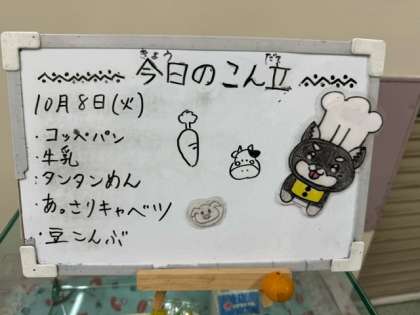 今日のこん立
きょう だて
10月8日(火)
・コッペパン
・牛乳
・タンタンめん
・あっさりキャベツ
・豆こんぶ